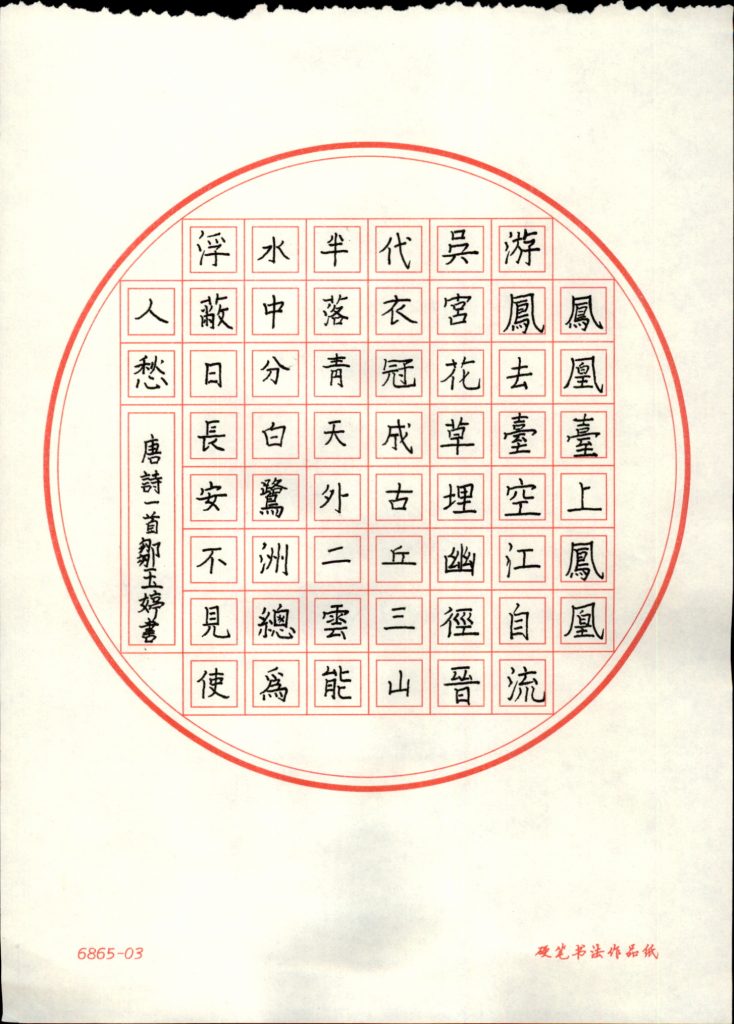 鳳凰臺上鳳凰
游鳳去臺空江自流
吳宮花草埋幽徑晉
代衣冠成古丘三山
半落青天外二雲能
水中分白鷺洲總爲
浮蔽日長安不見使
人愁
唐詩一首鄒玉婷書
6865-03
硬笔书法作品纸